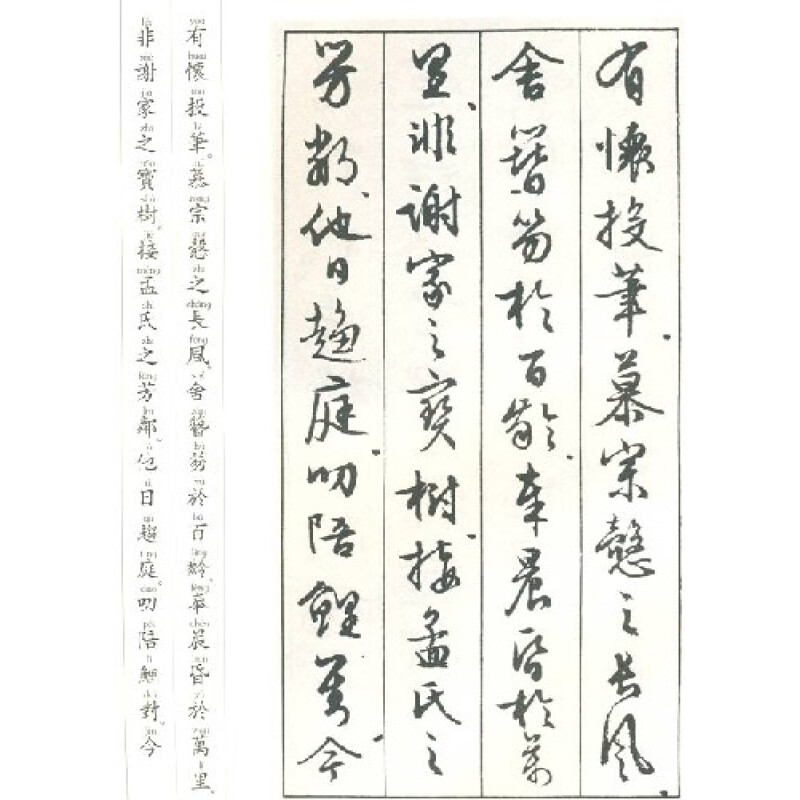 有懷投筆、慕宗愨之長風、
舍簪笏於百齡、奉晨昏於萬
里、非謝家之寶樹、接孟氏之
芳鄰、他日趨庭、叨陪鯉對、今
有懷投筆。慕宗愨之長風。舍簪笏於百齡。奉晨昏於萬里。
非謝家之寶樹。接孟氏之芳鄰。他日趨庭。叨陪鯉對。今